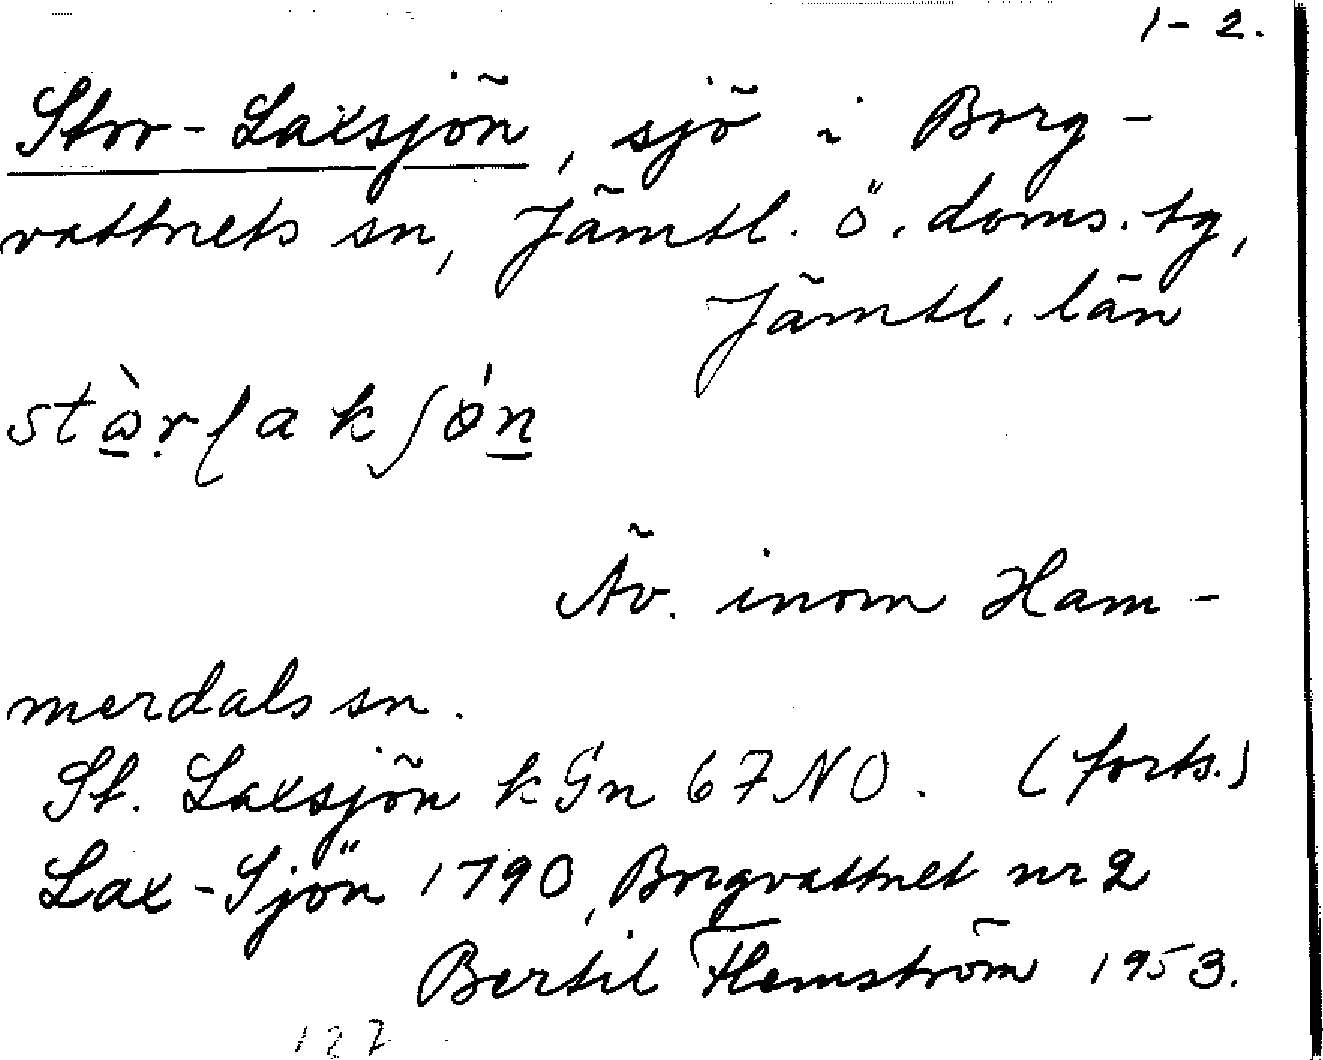 1-2.
Stor-Laxsjön, sjö i Borg-
vattnets sn, Jämtl. ö. doms. tg,
Jämtl. län
Äv. inom Ham-
merdals sn.
St. Laxsjön kGn 67 NO. (forts.)
Lax-Sjön 1790, Borgvattnet nr 2
Bertil Flemström 1953.
127